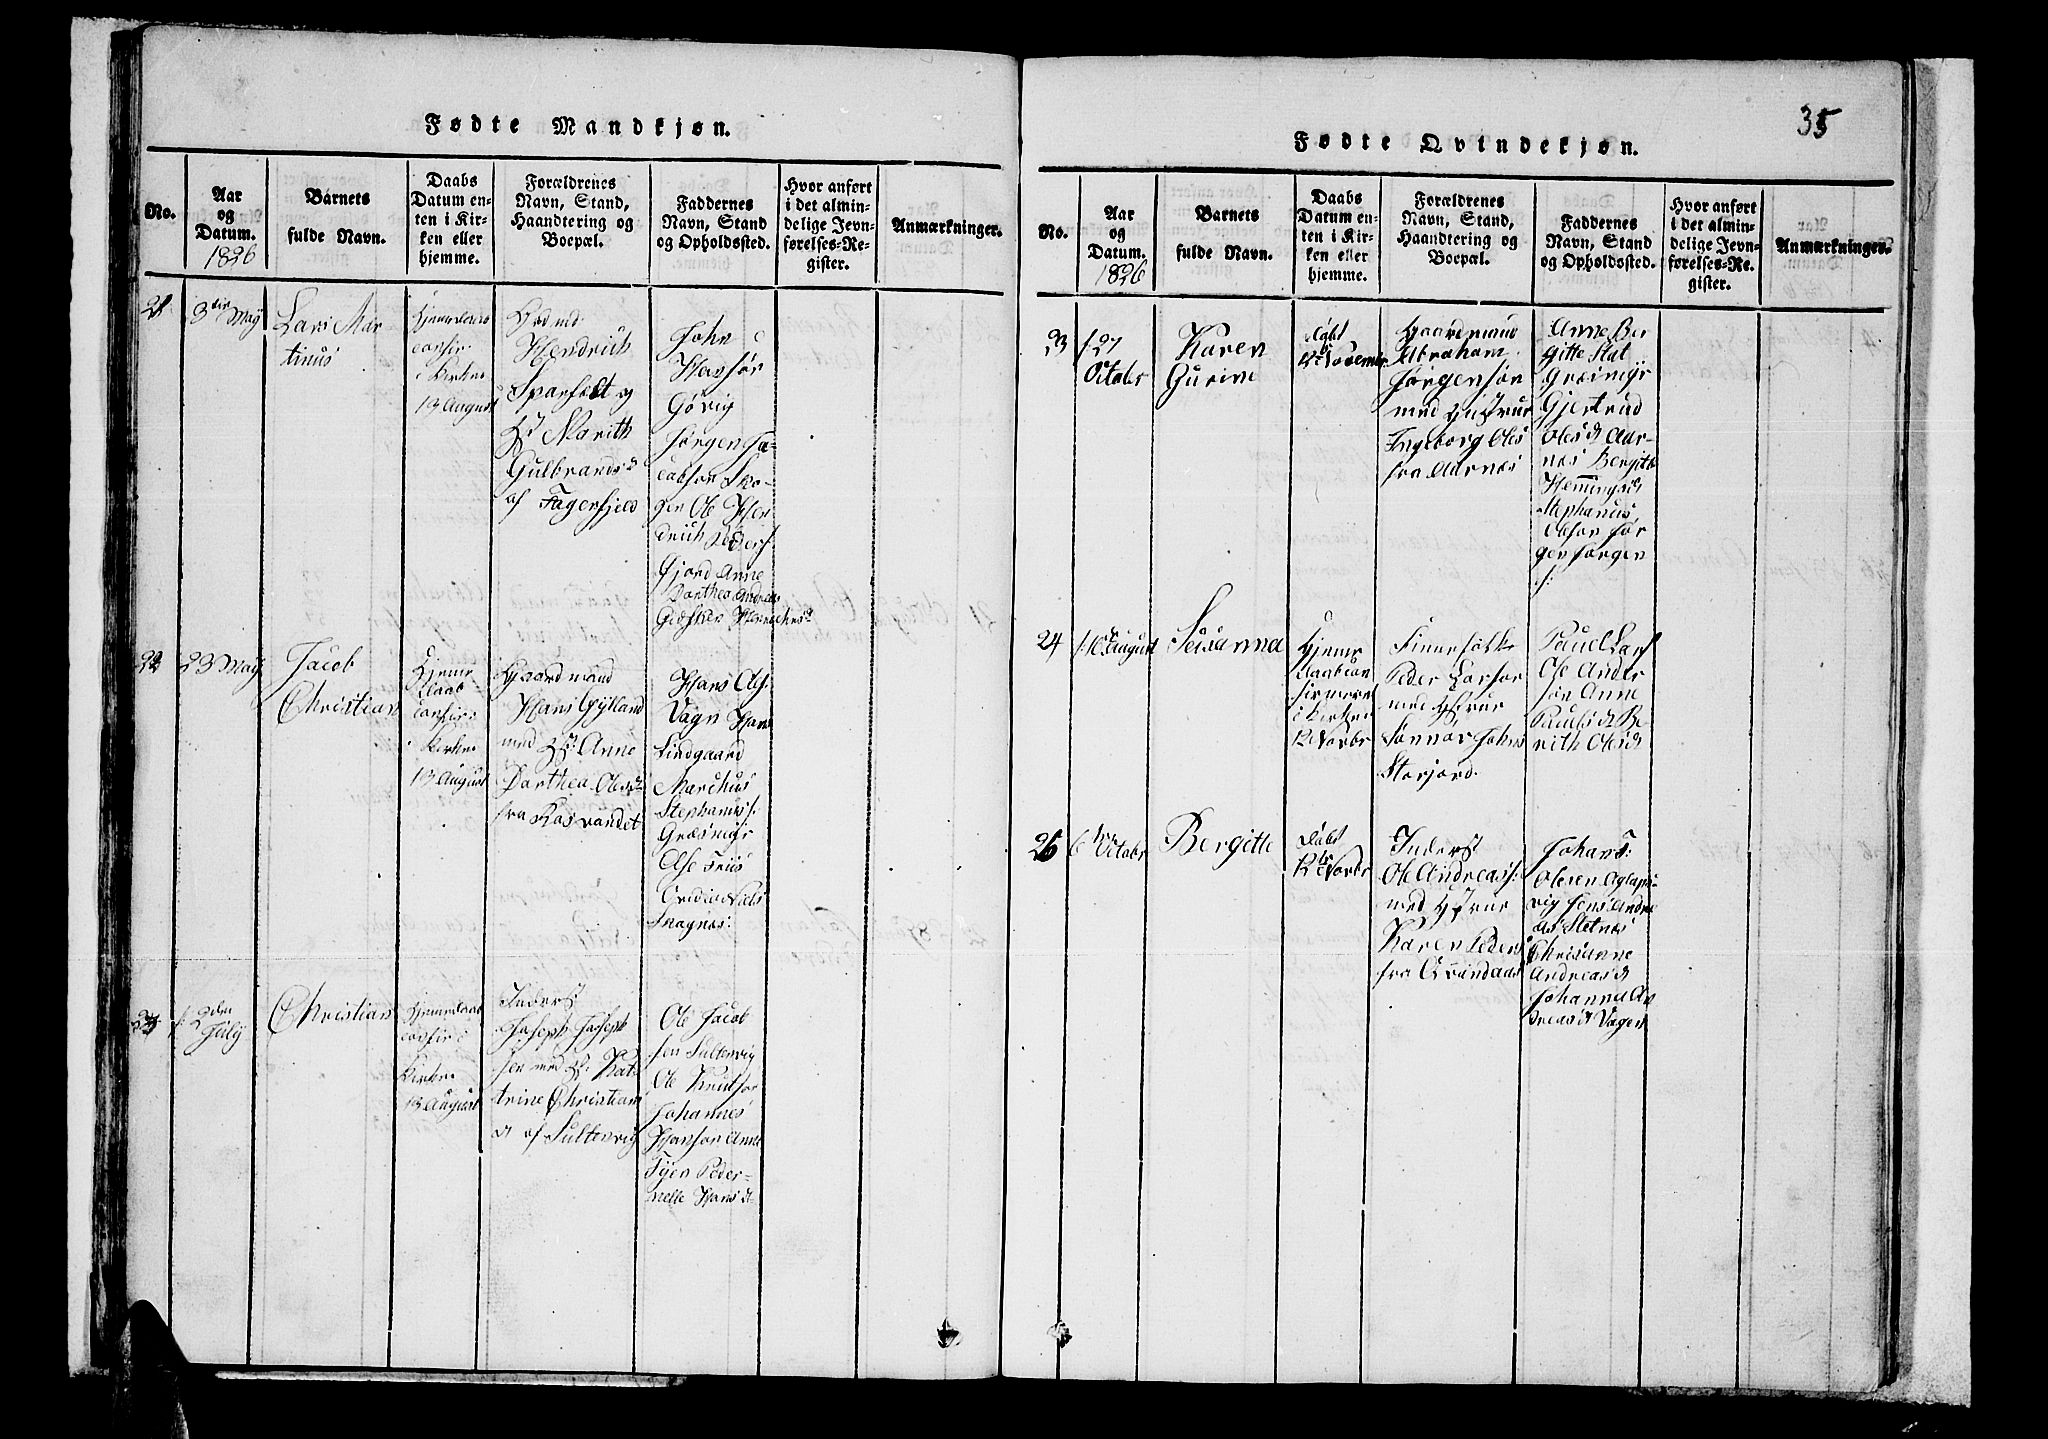 Fødte Mandkjøn.
No.
Aar
og
Datum.
1826
Barnets
fulde Navn.
Daabs
Datum en-
ten i Kir-
ken eller
hjemme.
Forældrenes
Navn, Stand,
Haandtering og
Boepæl.
Faddernes
Navn, Stand
og Opholdssted.
Hvor anført
i det almin-
delige Jevn-
førelses-Re-
gister.
Anmærkninger.
21
3die May
Lars Mar-
tinus
Hjemmedaab
confir.
i Kirken
13 August
Hendrich
Sparfelt og
H. Marith
Gulbrandsd
af Fagerfjeld
John
Hansør
Gørvig
Jørgen Ja-
cobsen Sko-
gen Ole Hen-
drich Peders:
fjord Anne
Dorthea Andreas
22
23 May
Jacob
Christian
Hjemme
daab
confir.
i Kirken
13 August
Gaardmand
Hans Gylland
med H. Anne
Dorthea Olesd
fra Kasvandet
Hans Ols:
Vagn Hans
Lindgaard
Marchus
Stephans:
Græsmyr
Else Friis
Snagnæs:
23
f: 2den
July
Christian
Hjemmedaab
confir i
Kirken
13 August
Inderst
Joseph Joseph
sen med H. Kat-
trine Christians
d af Sultenvig
Ole Jacob
sen Sultenvig
Ole Knudsør
Johannes
Hansør Anne
Peder-
nelle Hans d
35
Fødte Qvindekjøn.
No.
Aar
og
Datum.
1826
Barnets
fulde Navn.
Daabs
Datum en-
ten i Kir-
ken eller
hjemme.
Forældrenes
Navn, Stand,
Haandtering og
Boepæl.
Faddernes
Navn, Stand
og Opholdssted.
Hvor anført
i det almin-
delige Jevn-
førelses-Re-
gister.
Anmærkninger.
23
f: 27
Octobr
Karen
Gurine
døbt
12 Novembr
Gaardmand
Abraham
Jørgensør
med Hustrue
Ingeborg Oles
fra Aarnæs
Anne Ber
gitte Stat
Græsmyr
Gjertrud
Oles d Aar-
næs Bergitte
Hemmingsd
Stephanus
Olesør Jør
gen Jørgen
s:
24
f: 10 August
Seisanna
Hjemme
daab con
firmeret
i Kirken
12 Novbr
Finnefolk
Peder Larsør
med Hstrue
Sønnør Johns
Storjord.
Pauel Lars
Ole Ander
sør Anne
Pauls d Be
rith Oles d
25
6 Octobr
Bergitte
Døbt
12 Novbr
Inderst
Ole Andreass:
med Hstrue
Karen Peders
fra Qvindaas
Johans:
Olesen Aglapr-
vig Jens Andre
as Sletnæs
Chrisanne
Andreas d
Johanna An
dreas d Vagen